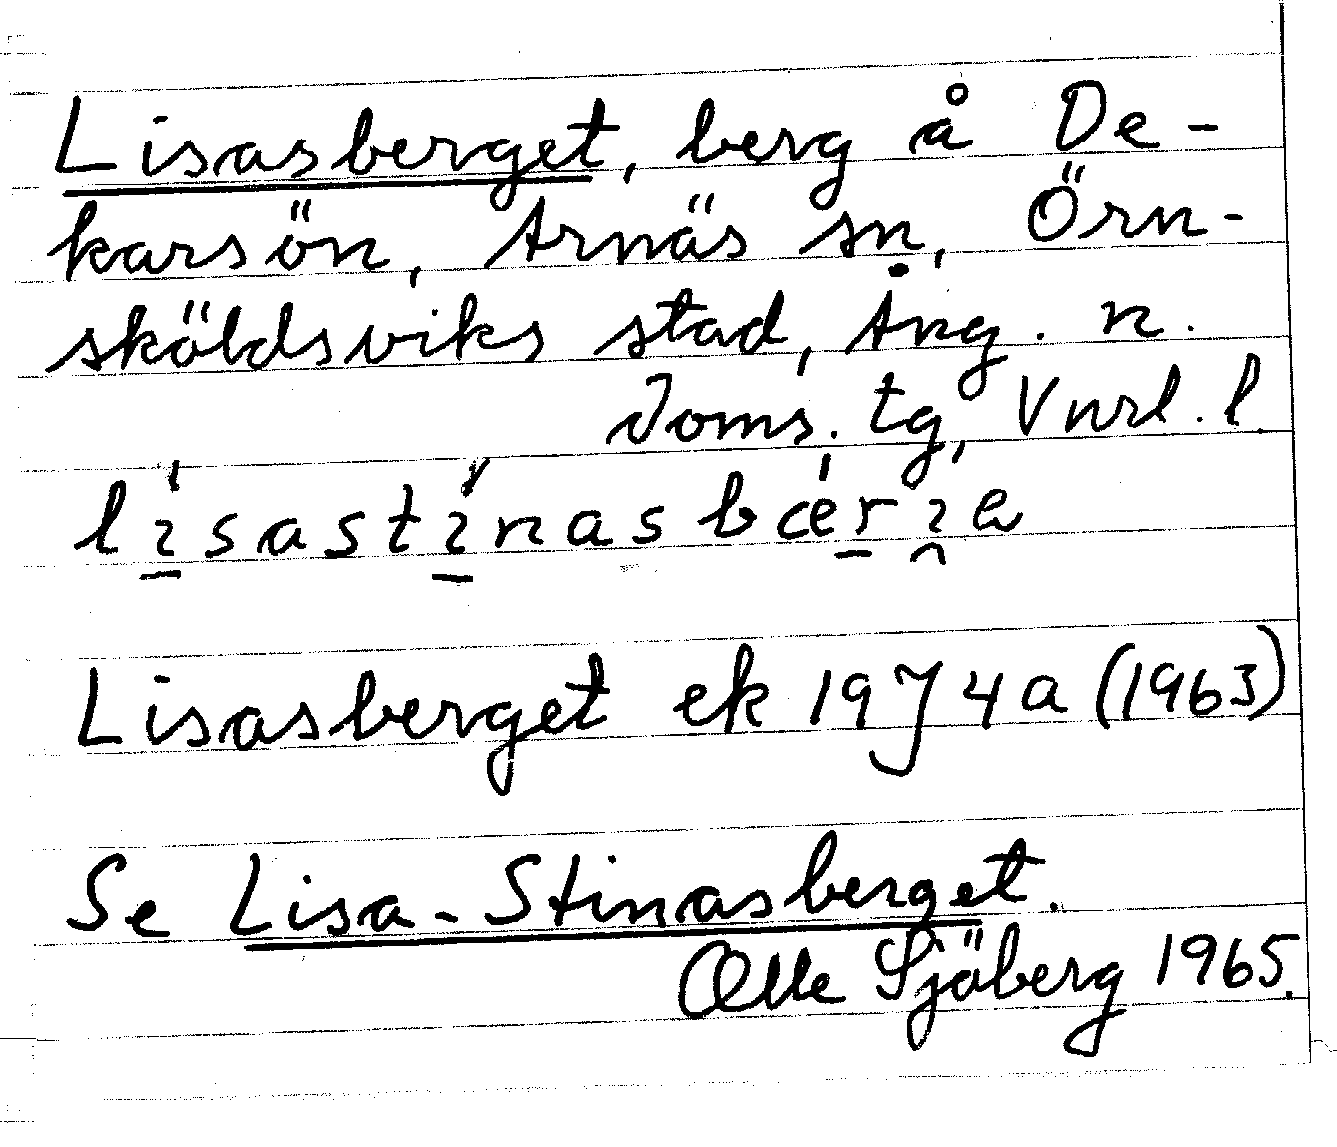 Lisasberget, berg å De-
karsön, Arnäs sn, Örn-
sköldsviks stad, Ång. n.
doms. tg, Vnrl. l.
li̱sasti̱nasbæṟi̯e
Lisasberget ek 19J4a (1963)
Se Lisa-Stinasberget.
Olle Sjöberg 1965.